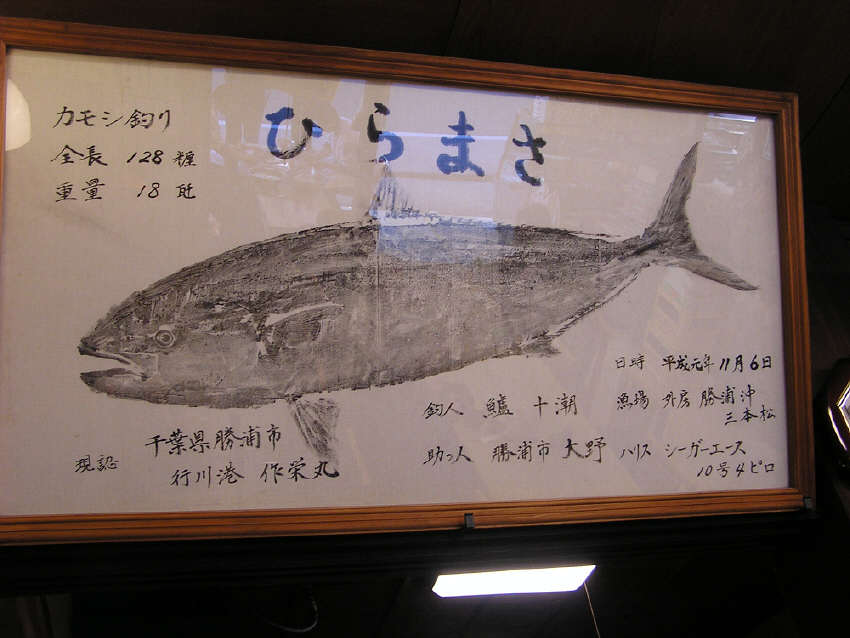 ひらまさ
カモシ釣り
全長 128糎
重量 18瓩
日時 平成元年11月6日
釣人 鱸 十潮 漁場 外房 勝浦沖
三本松
現認 千葉県勝浦市
行川港 作栄丸
助っ人 勝浦市 大野 ハリス シーガーエース
10号4ピロ